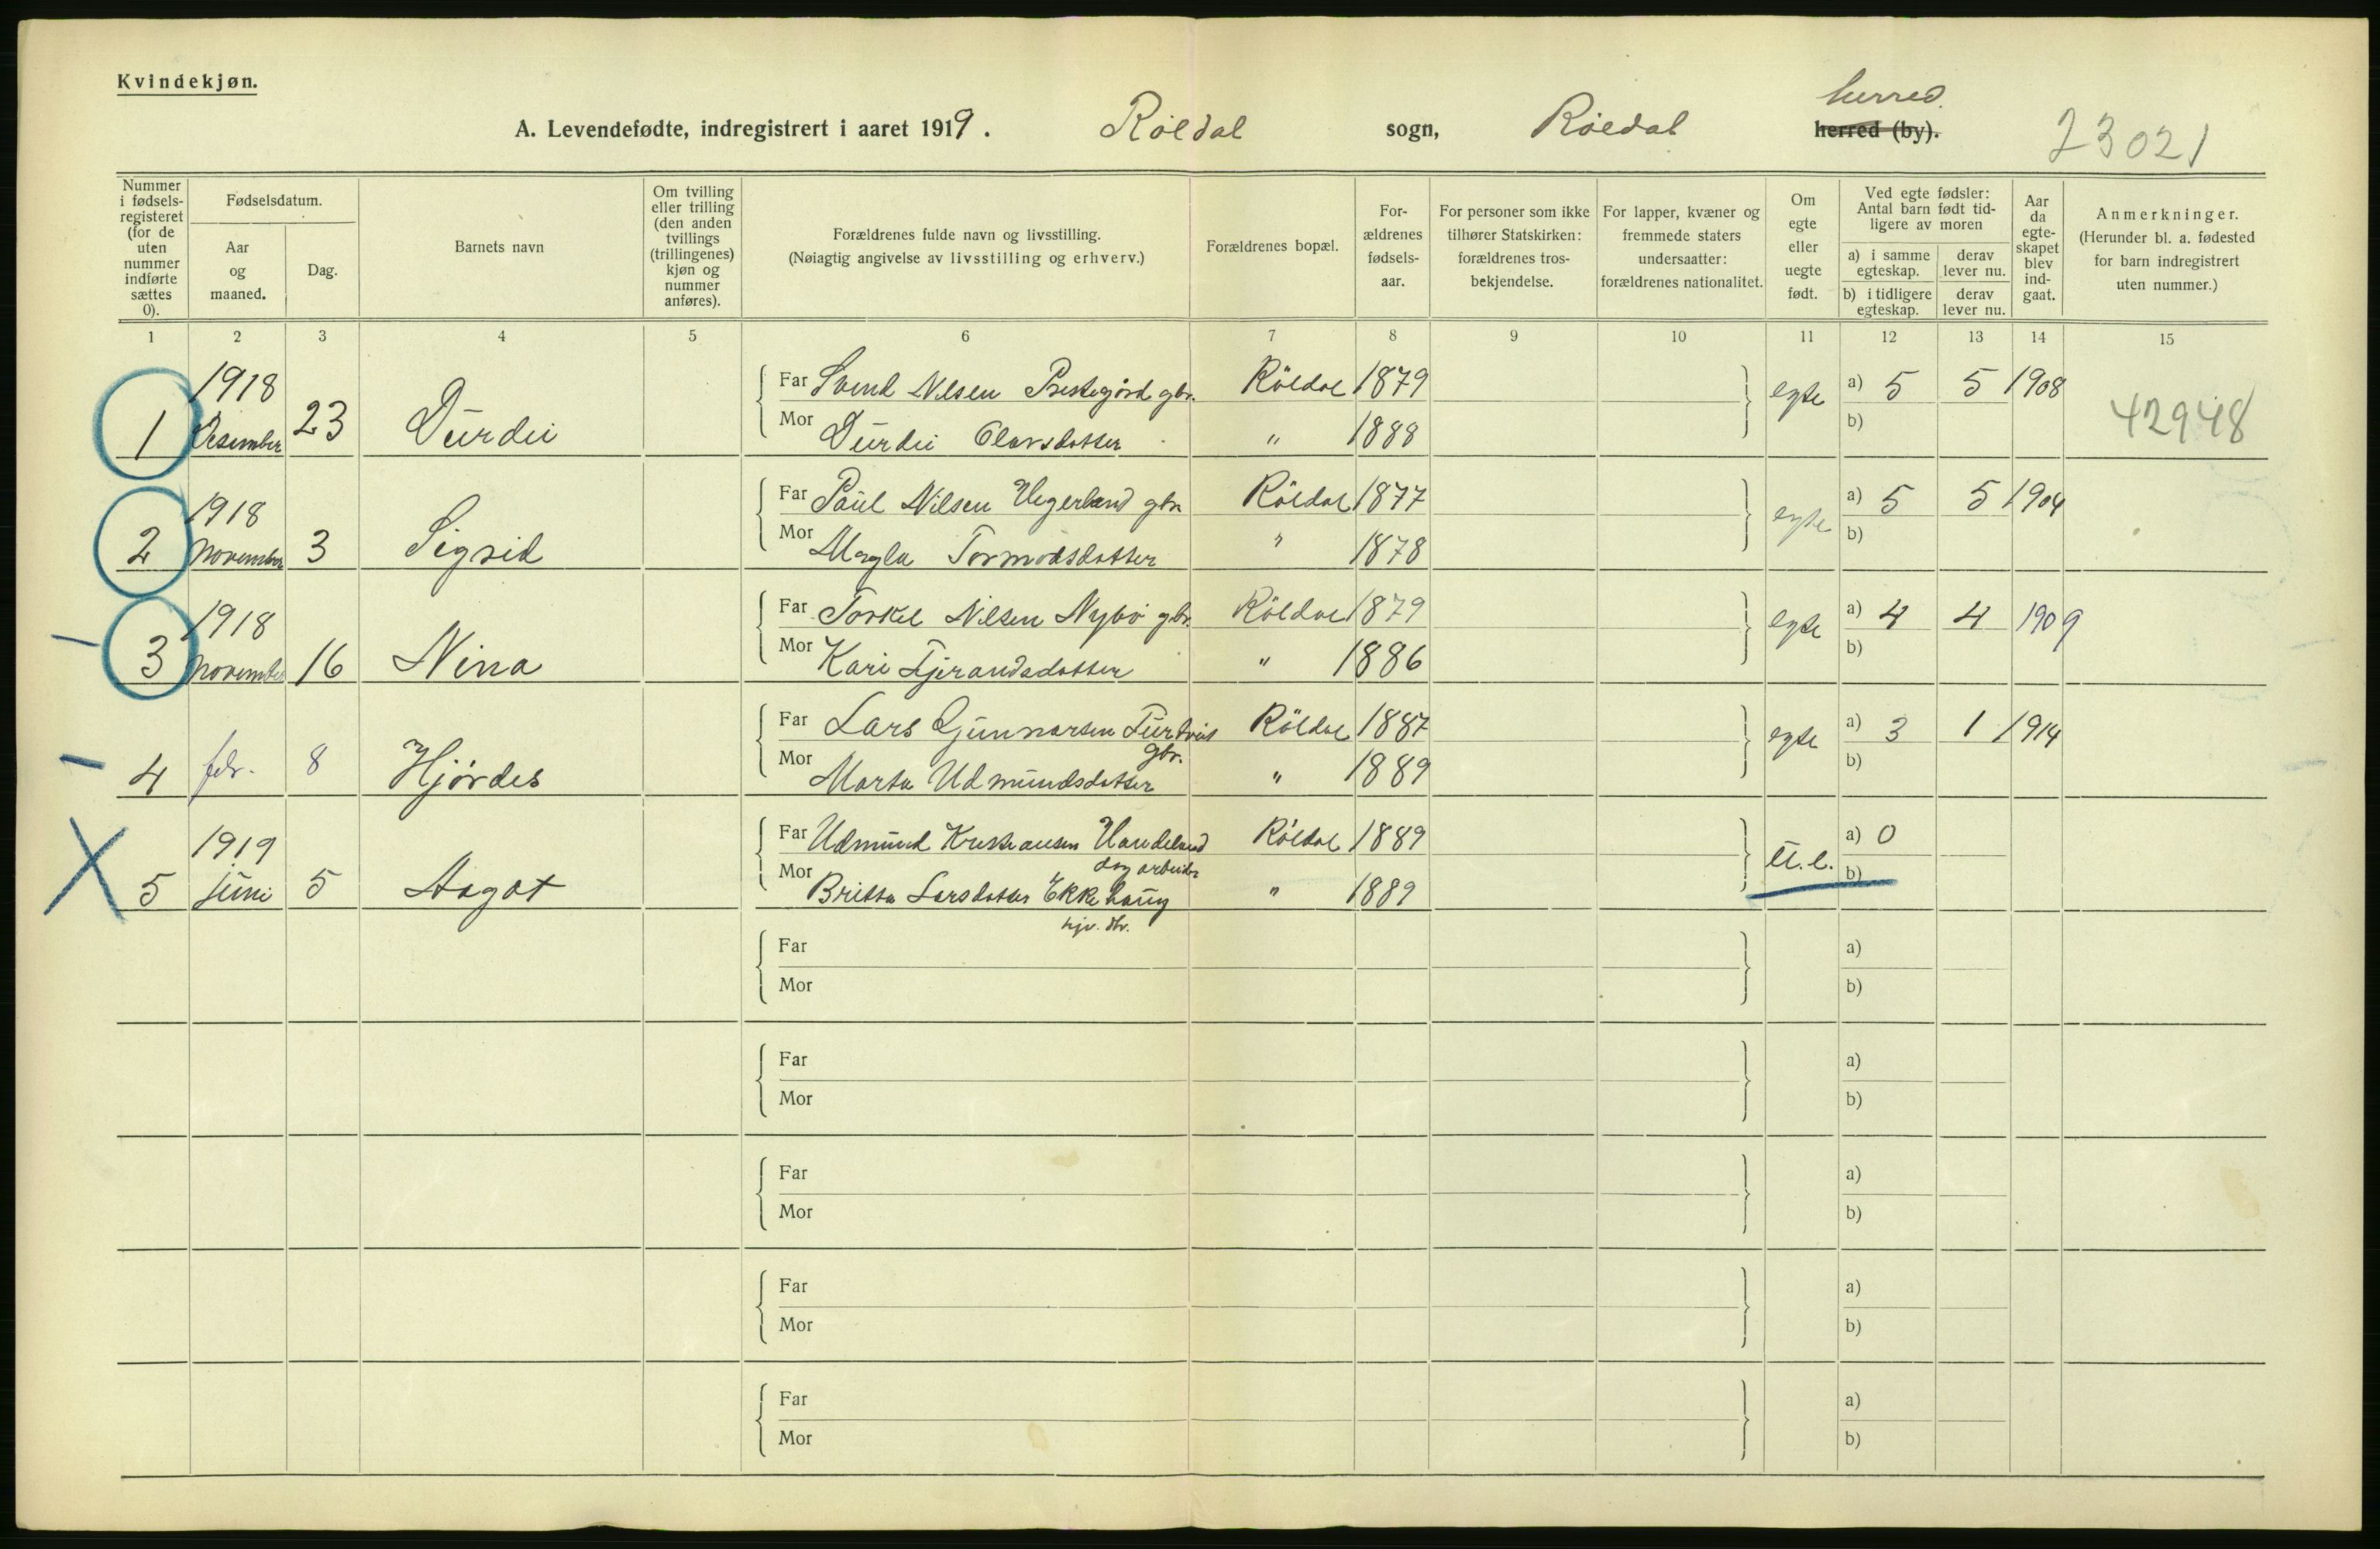 Kvindekjøn.
herred.
A. Levendefødte, indregistrert i aaret 1919. Röldal sogn, Röldal herred (by). 23021
Nummer i fødselsregisteret (for de uten nummer indførte sættes 0).
Fødselsdatum.
Aar og maaned.
Dag.
Barnets navn
Om tvilling eller trilling (den anden tvillings (trillingenes) kjøn og nummer anføres).
Forældrenes fulde navn og livsstilling.
(Nøiagtig angivelse av livsstilling og erhverv.)
Forældrenes bopæl.
Forældrenes fødselsaar.
For personer som ikke tilhører Statskirken: forældrenes trosbekjendelse.
For lapper, kvæner og fremmede staters undersaatter: forældrenes nationalitet.
Om egte eller uegte født.
Ved egte fødsler: Antal barn født tidligere av moren
a) i samme egteskap.
derav lever nu.
b) i tidligere egteskap.
derav lever nu.
Aar da egteskapet blev indgaat.
Anmerkninger.
(Herunder bl. a. fødested for barn indregistrert uten nummer.)
1 2 3 4 5 6 7 8 9 10 11 12 13 14 15
1918 Far Svend Nilsen Prestegård gbr. Röldal 1879 egte a) 5 5 1908
1 Desember 23 Durdei Mor Durdei Olavsdotter " 1888 b) 42948
1918 Far Paul Nilsen Hegerland gbr Röldal 1877 egte a) 5 5 1904
2 November 3 Sigrid Mor Magla Tormodsdotter " 1878 b)
1918 Far Torkel Nilsen Nybö gbr. Röldal 1879 egte a) 4 4 1909
3 November 16 Nina Mor Kari Tjerandsdotter " 1886 b)
Far Lars Gunnarsen Röldal 1887 egte a) 3 1 1914
gbr.
4 febr. 8 Hjördes Mor Marta Udmundsdotter " 1889 b)
1919 Far Udmund Kristiansen Handeland Röldal 1889 u.e. a) 0
dagarbeider
5 juni 5 Aagot Mor Britta Larsdotter Ekkehaug " 1889 b)
Far a)
Mor b)
Far a)
Mor b)
Far a)
Mor b)
Far a)
Mor b)
Far a)
Mor b)